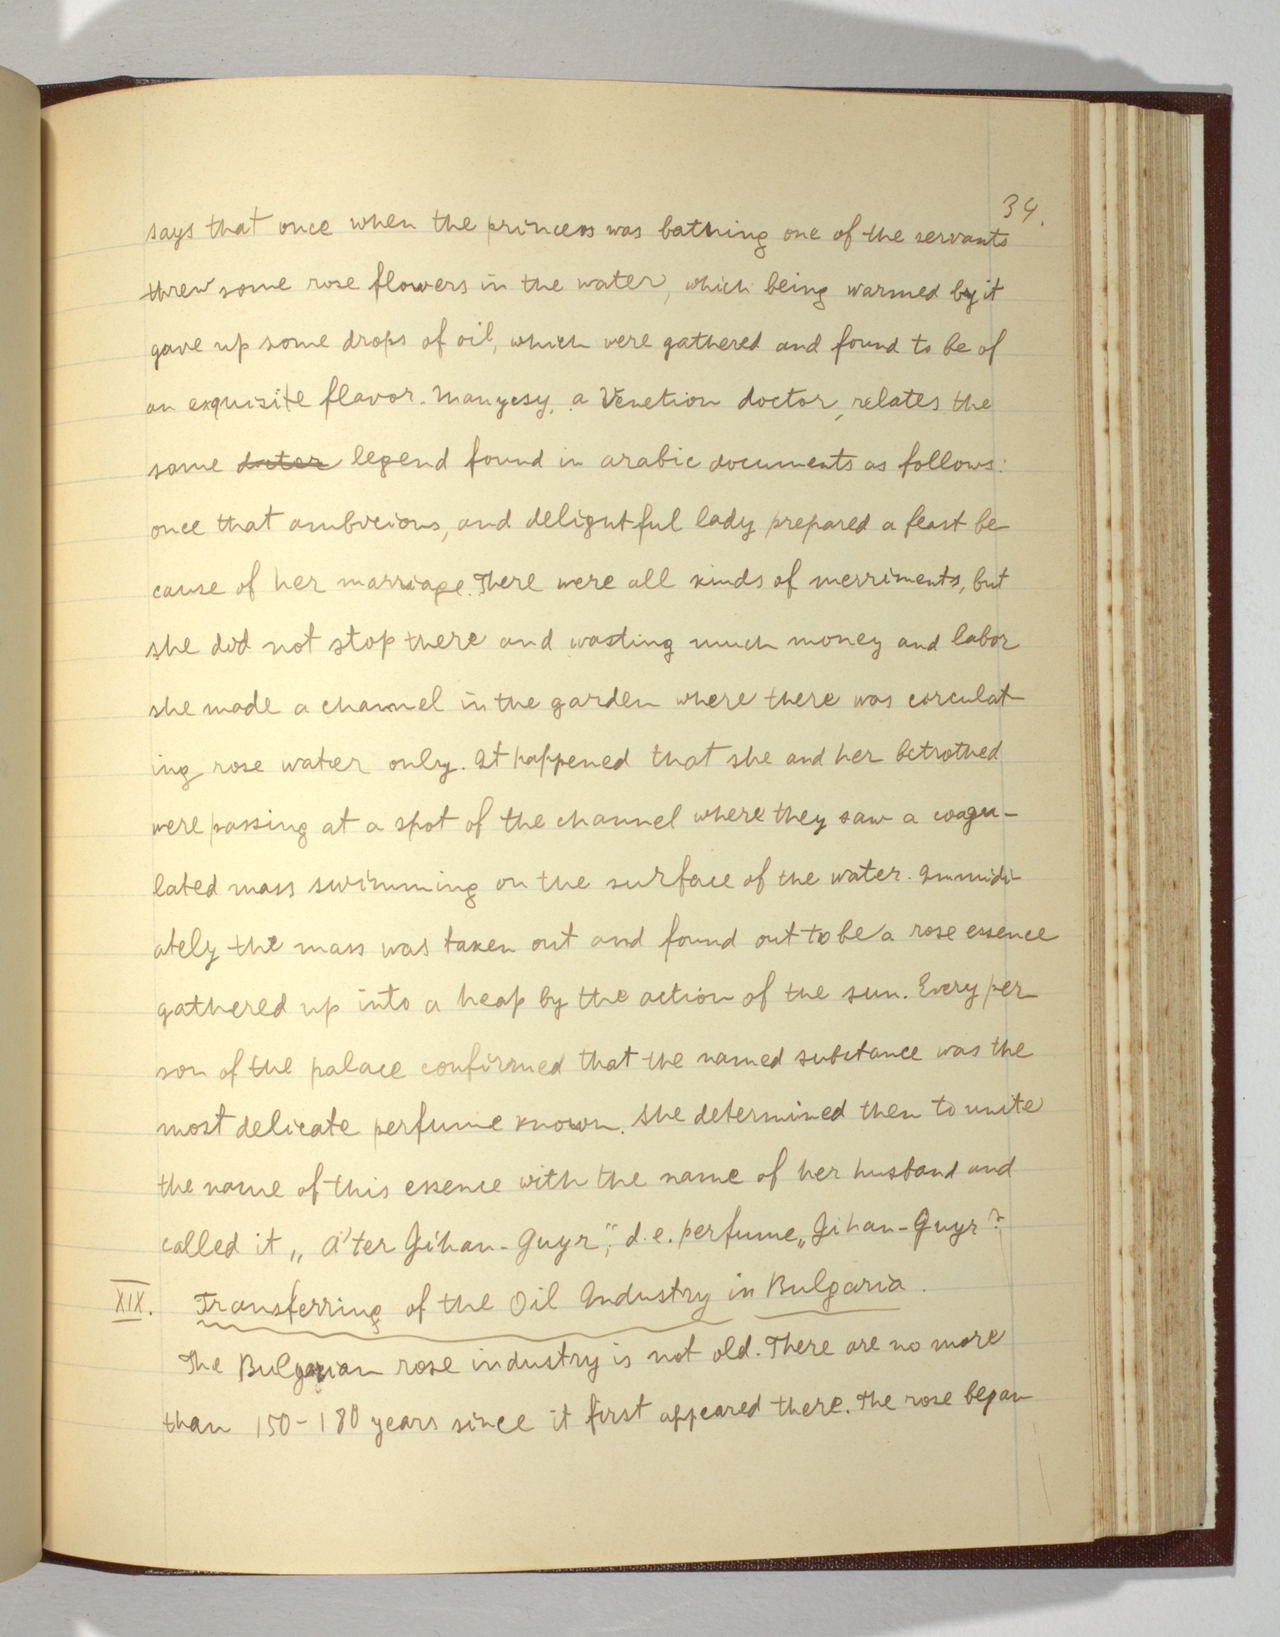 34.
says that once when the princess was bathing one of the servants
threw some rose flowers in the water, which being warmed by it
gave up some drops of oil, which were gathered and found to be of
an exquisite flavor. Manyesy, a Venetion doctor, relates the
same doctor legend found in arabic documents as follows:
once that ambicious, and delightful lady prepared a feast be
cause of her marriage. There were all kinds of merriments, but
she did not stop there and wasting much money and labor
she made a channel in the garden where there was circulat-
ing rose water only. It happened that she and her betrothed
were passing at a spot of the channel where they saw a coagu-
lated mass swimming on the surface of the water. Immidi-
ately the mass was taken out and found out to be a rose essence
gathered up into a heap by the action of the sun. Every per
son of the palace confirmed that the named substance was the
most delicate perfume known. She determined then to unite
the name of this essence with the name of her husband and
called it „A'ter Jihan-Guyr", d.e. perfume „Jihan-Guyr".
XIX. Transferring of the Oil Industry in Bulgaria.
The Bulgarian rose industry is not old. There are no more
than 150-180 years since it first appeared there. The rose began